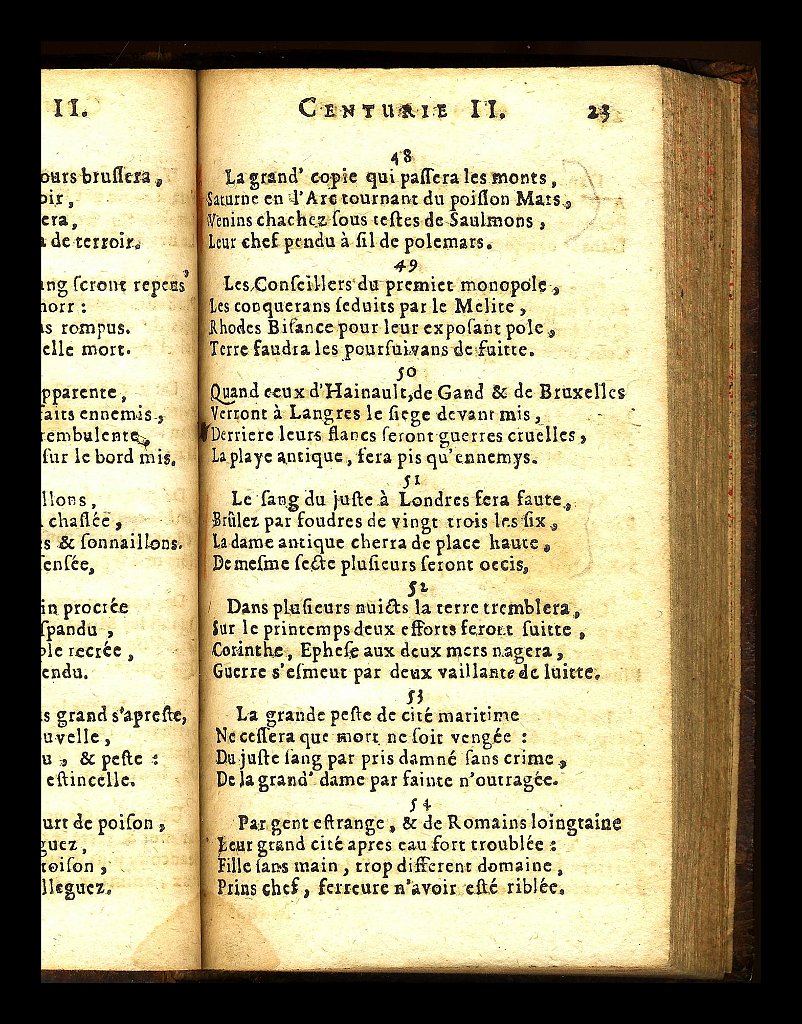 II.
ours bruſlera,
oir,
era,
a de terroir.
ang ſeront repeus
morr :
ns rompus.
elle mort.
pparente,
faits ennemis,
rembulente,
ſur le bord mis.
llons,
chaſſée,
s & ſonnaillons.
enſée,
in procrée
ſpandu,
ble recrée,
endu.
s grand s'apreſte,
uvelle,
u, & peſte :
eſtincelle.
urt de poiſon,
guez,
toiſon,
lleguez.
CENTURIE II. 23
48
La grand' copie qui paſſera les monts,
Saturne en d'Arc tournant du poiſſon Mars,
Venins chachez ſous teſtes de Saulmons,
Leur chef pendu à fil de polemars.
49
Les Conſeillers du premiet monopole,
Les conquerans ſeduits par le Melite,
Rhodes Biſance pour leur expoſant pole,
Terre faudra les pourſuivans de fuitte.
50
Quand ceux d'Hainault, de Gand & de Bruxelles
Verront à Langres le ſiege devant mis,
Derriere leurs flancs ſeront guerres cruelles,
La playe antique, ſera pis qu'ennemys.
51
Le ſang du juſte à Londres fera faute,
Brûlez par foudres de vingt trois les ſix,
La dame antique cherra de place haute,
De meſme ſecte pluſieurs ſeront occis,
52
Dans pluſieurs nuicts la terre tremblera,
Sur le printemps deux efforts feront ſuitte,
Corinthe, Epheſe aux deux mers nagera,
Guerre s'eſmeut par deux vaillante de luitte.
53
La grande peſte de cité maritime
Ne ceſſera que mort ne ſoit vengée :
Du juſte ſang par pris damné ſans crime,
De la grand' dame par fainte n'outragée.
54
Par gent eſtrange, & de Romains loingtaine
Leur grand cité apres eau fort troublée :
Fille ſans main, trop different domaine,
Prins chef, ferreure n'avoir eſté riblée.